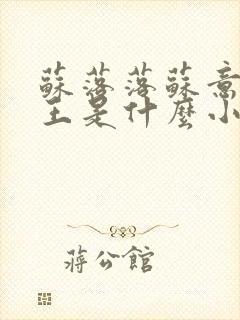 蘇落落蘇意
主是什麼小
蔣公館